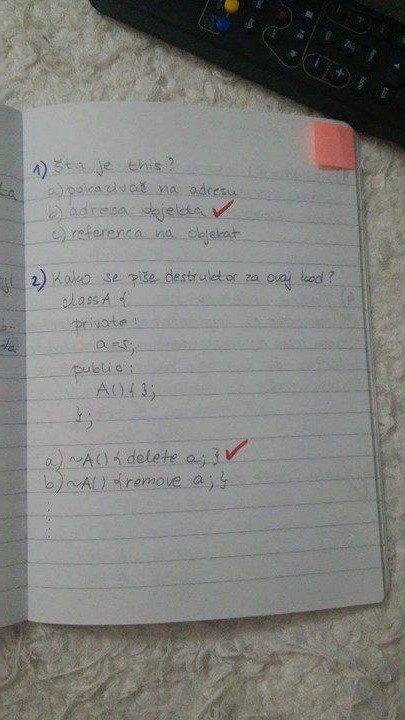 1) Šta je this?
a) pokazivač na adresu
b) adresa objekta ✓
c) referenca na objekat
2) Kako se piše destruktor za ovaj kod?
class A {
private:
a=5;
public:
A() { };
};
a) ~A() { delete a; } ✓
b) ~A() { remove a; }